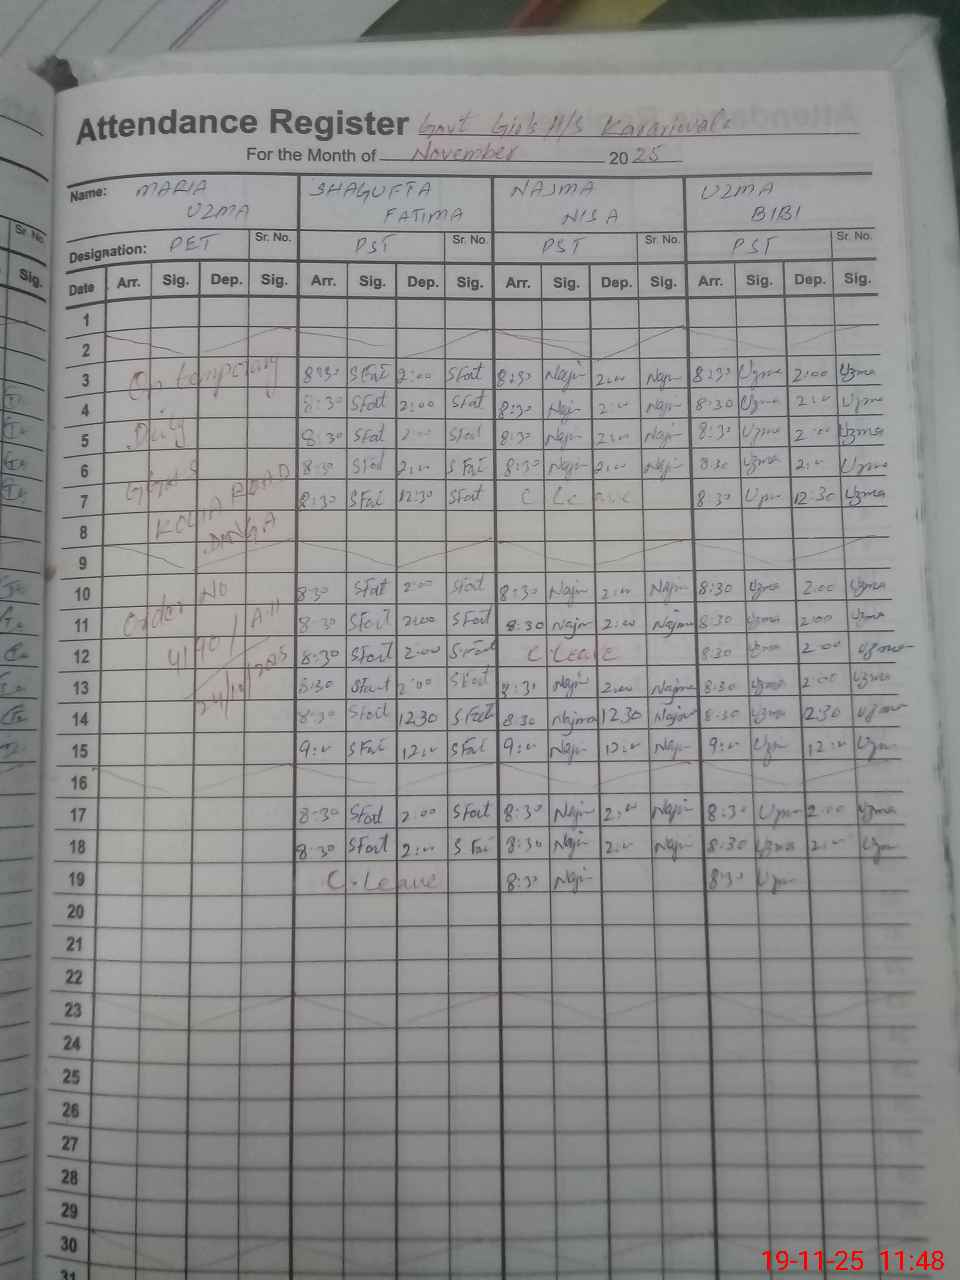 Attendance Register Govt Girls H/S
For the Month of November 2025
Name: MARIA UZMA SHAGUFTA FATIMA NAJMA NISA UZMA BIBI
Designation: PET Sr. No. PST Sr. No. PST Sr. No. PST Sr. No.
Date Arr. Sig. Dep. Sig. Arr. Sig. Dep. Sig. Arr. Sig. Dep. Sig. Arr. Sig. Dep. Sig.
1
2
3 On temporary 8:30 SFat 2:00 SFat 8:30 Najm 2:00 Najm 8:30 Uzma 2:00 Uzma
4 8:30 SFat 2:00 SFat 8:30 Najm 2:00 Najm 8:30 Uzma 2:00 Uzma
5 Duty 8:30 SFat 2:00 SFat 8:30 Najm 2:00 Najm 8:30 Uzma 2:00 Uzma
6 8:30 SFat 2:00 SFat 8:30 Najm 2:00 Najm 8:30 Uzma 2:00 Uzma
7 8:30 SFat 12:30 SFat C Leave 8:30 Uzma 12:30 Uzma
8
9
10 Order No 8:30 SFat 2:00 SFat 8:30 Najm 2:00 Najm 8:30 Uzma 2:00 Uzma
11 4190/A-11 8:30 SFat 2:00 SFat 8:30 Najm 2:00 Najma 8:30 Uzma 2:00 Uzma
12 8:30 SFat 2:00 SFat C Leave 8:30 Uzma 2:00 Uzma
13 24/10/2025 8:30 SFat 2:00 SFat 8:30 Najm 2:00 Najma 8:30 Uzma 2:00 Uzma
14 8:30 SFat 12:30 SFat 8:30 Najma 12:30 Najma 8:30 Uzma 12:30 Uzma
15 9:00 SFat 12:00 SFat 9:00 Najm 12:00 Najm 9:00 Uzm 12:00 Uzm
16
17 8:30 SFat 2:00 SFat 8:30 Najm 2:00 Najm 8:30 Uzma 2:00 Uzma
18 8:30 SFat 2:00 SFat 8:30 Najm 2:00 Najm 8:30 Uzma 2:00 Uzm
19 C.Leave 8:30 Najm 8:30 Uzm
20
21
22
23
24
25
26
27
28
29
30
31
19-11-25 11:48